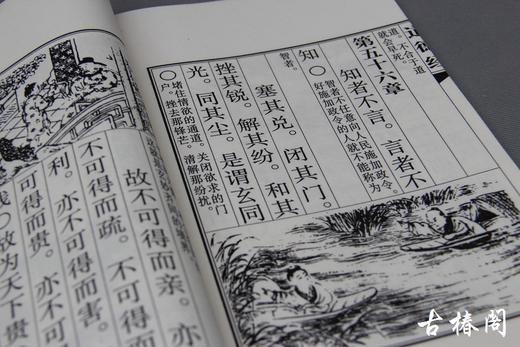 道德经
不合于道
就会早死。
第五十六章
知者不言。言者不
智者不任意向人民施加政令。
好施加政令的人就不能称为
知。
智者。
塞其兑。闭其门。
挫其锐。解其纷。和其
光。同其尘。是谓玄同
堵住情欲的通道。关闭欲求的门
户。挫去那锋芒。清解那纷扰。
故不可得而亲。亦
不可得而疏。不可得
利。亦不可得而害。
可得而贵。亦不可
故为天下贵
古椿阁